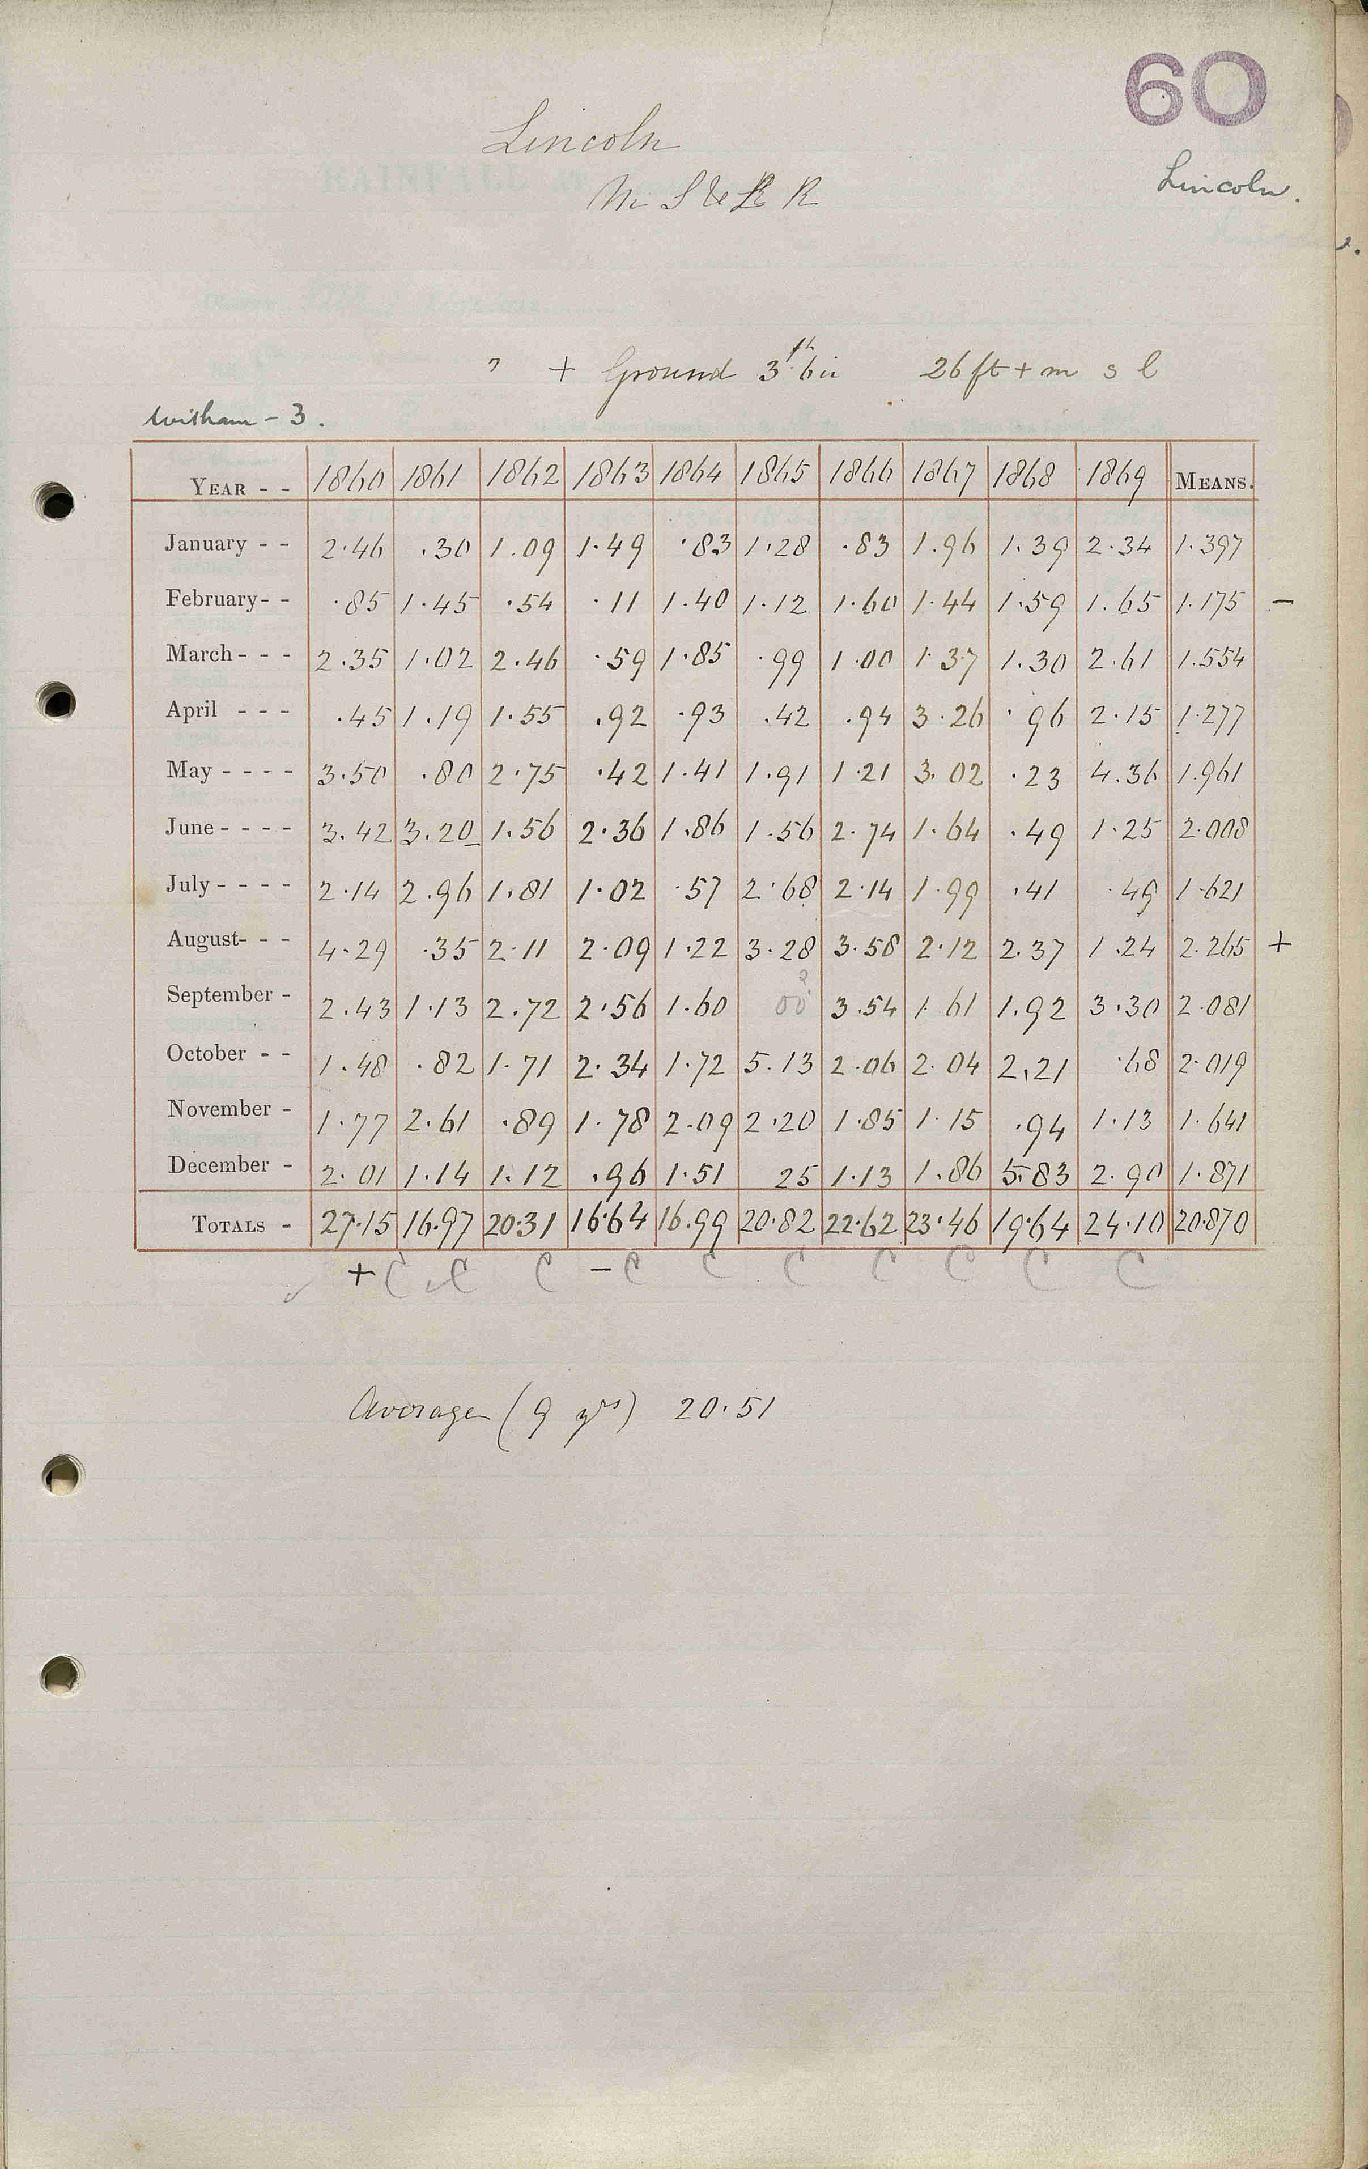 60
Lincoln
Lincoln.
M S & L R
? + Ground 3ft 6in 26 ft + m s l
Witham - 3.
YEAR - - 1860 1861 1862 1863 1864 1865 1866 1867 1868 1869 MEANS.
January - - 2.46 .30 1.09 1.49 .83 1.28 .83 1.96 1.39 2.34 1.397
February - - .85 1.45 .54 .11 1.40 1.12 1.60 1.44 1.59 1.65 1.175 -
March - - - 2.35 1.02 2.46 .59 1.85 .99 1.00 1.37 1.30 2.61 1.554
April - - - .45 1.19 1.55 .92 .93 .42 .94 3.26 .96 2.15 1.277
May - - - - 3.50 .80 2.75 .42 1.41 1.91 1.21 3.02 .23 4.36 1.961
June - - - - 3.42 3.20 1.56 2.36 1.86 1.56 2.74 1.64 .49 1.25 2.008
July - - - - 2.14 2.96 1.81 1.02 .57 2.68 2.14 1.99 .41 .49 1.621
August - - - 4.29 .35 2.11 2.09 1.22 3.28 3.58 2.12 2.37 1.24 2.265 +
September - 2.43 1.13 2.72 2.56 1.60 00? 3.54 1.61 1.92 3.30 2.081
October - - 1.48 .82 1.71 2.34 1.72 5.13 2.06 2.04 2.21 .68 2.019
November - 1.77 2.61 .89 1.78 2.09 2.20 1.85 1.15 .94 1.13 1.641
December - 2.01 1.14 1.12 .96 1.51 25 1.13 1.86 5.83 2.90 1.871
TOTALS - 27.15 16.97 20.31 16.64 16.99 20.82 22.62 23.46 19.64 24.10 20.870
+ C C C - C C C C C C C
Average (9 yrs) 20.51